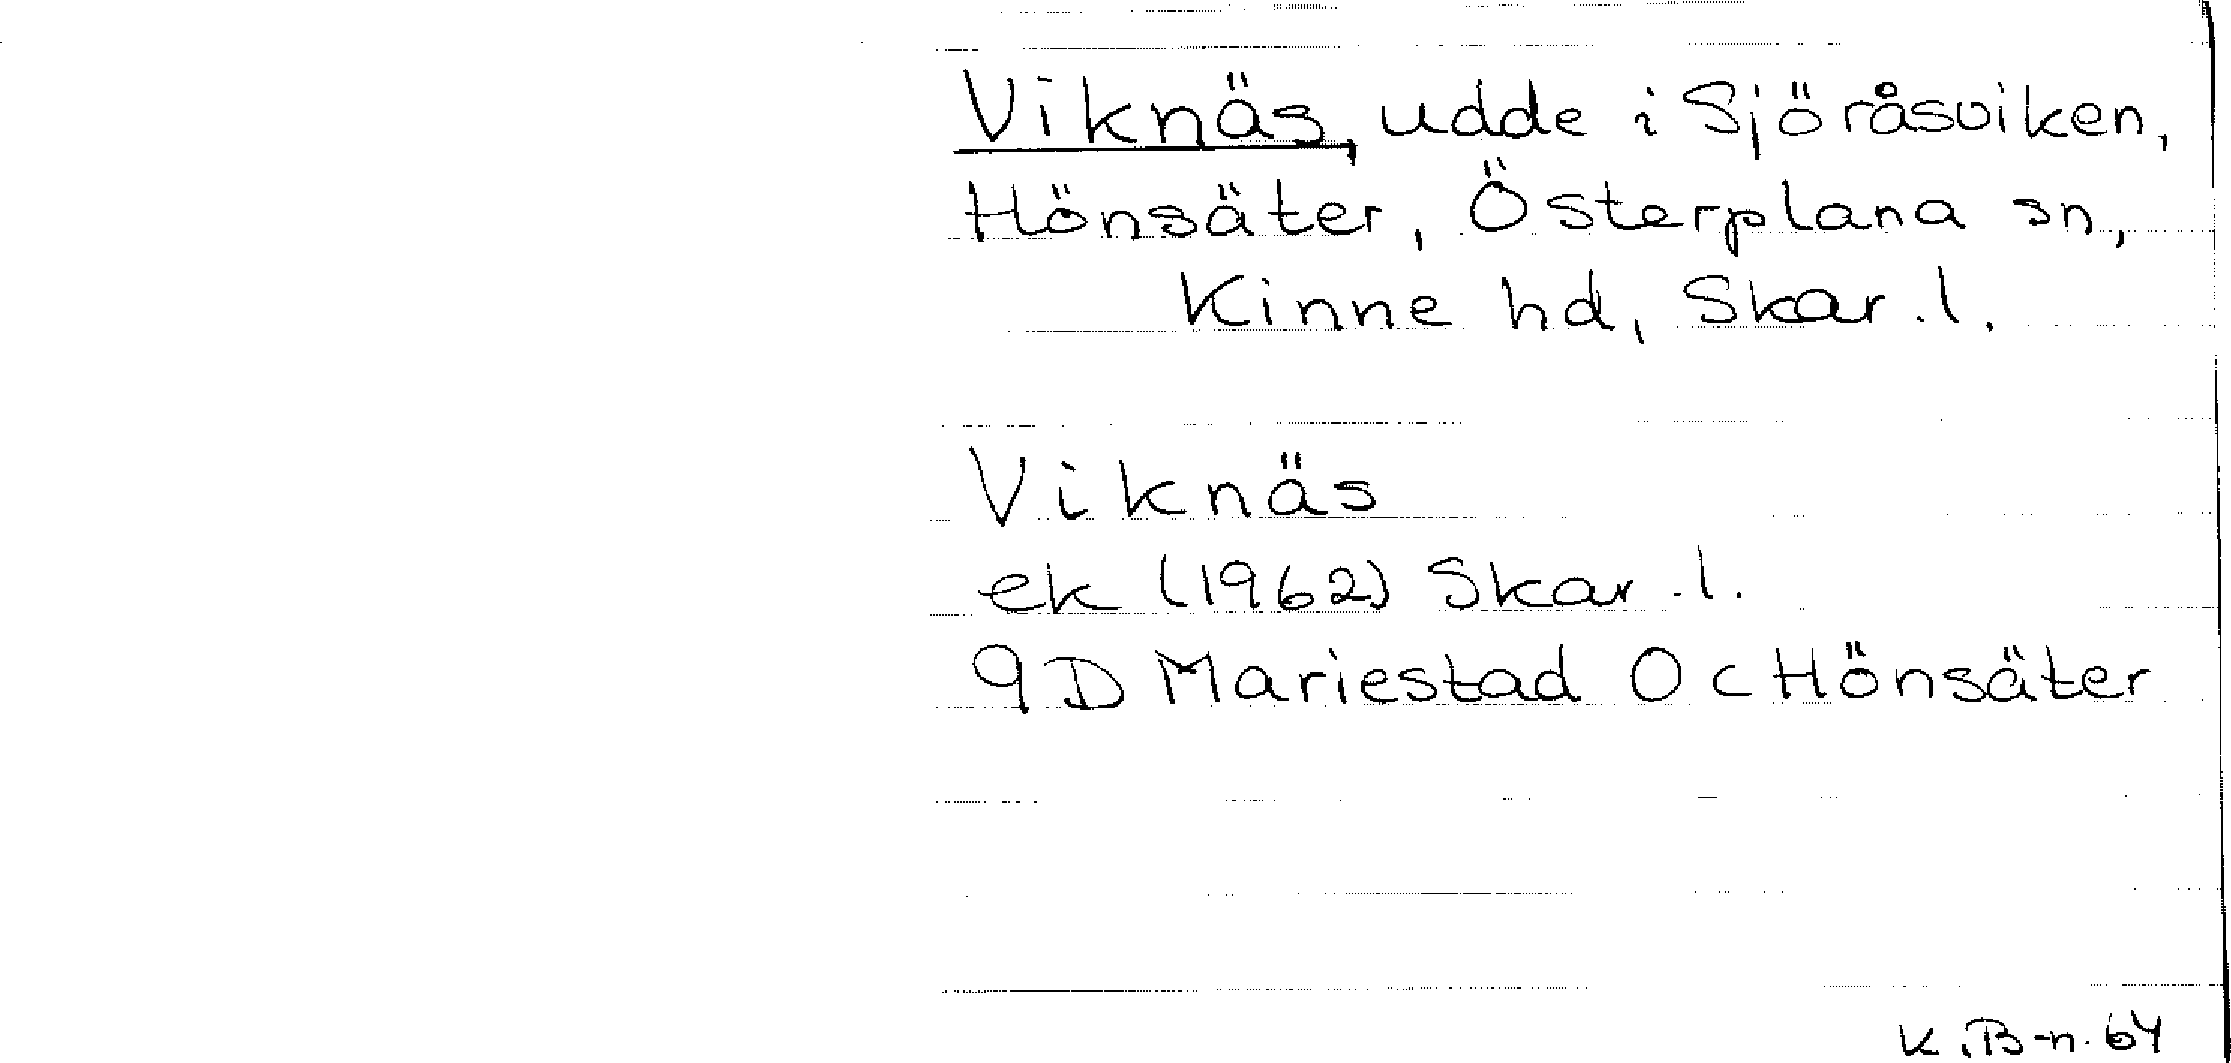 Viknäs, udde i Sjöråsviken,
Hönsäter, Österplana sn,
Kinne hd, Skar. l.
Viknäs
ek (1962) Skar. l.
9D Mariestad 0c Hönsäter
K.B-n. 64